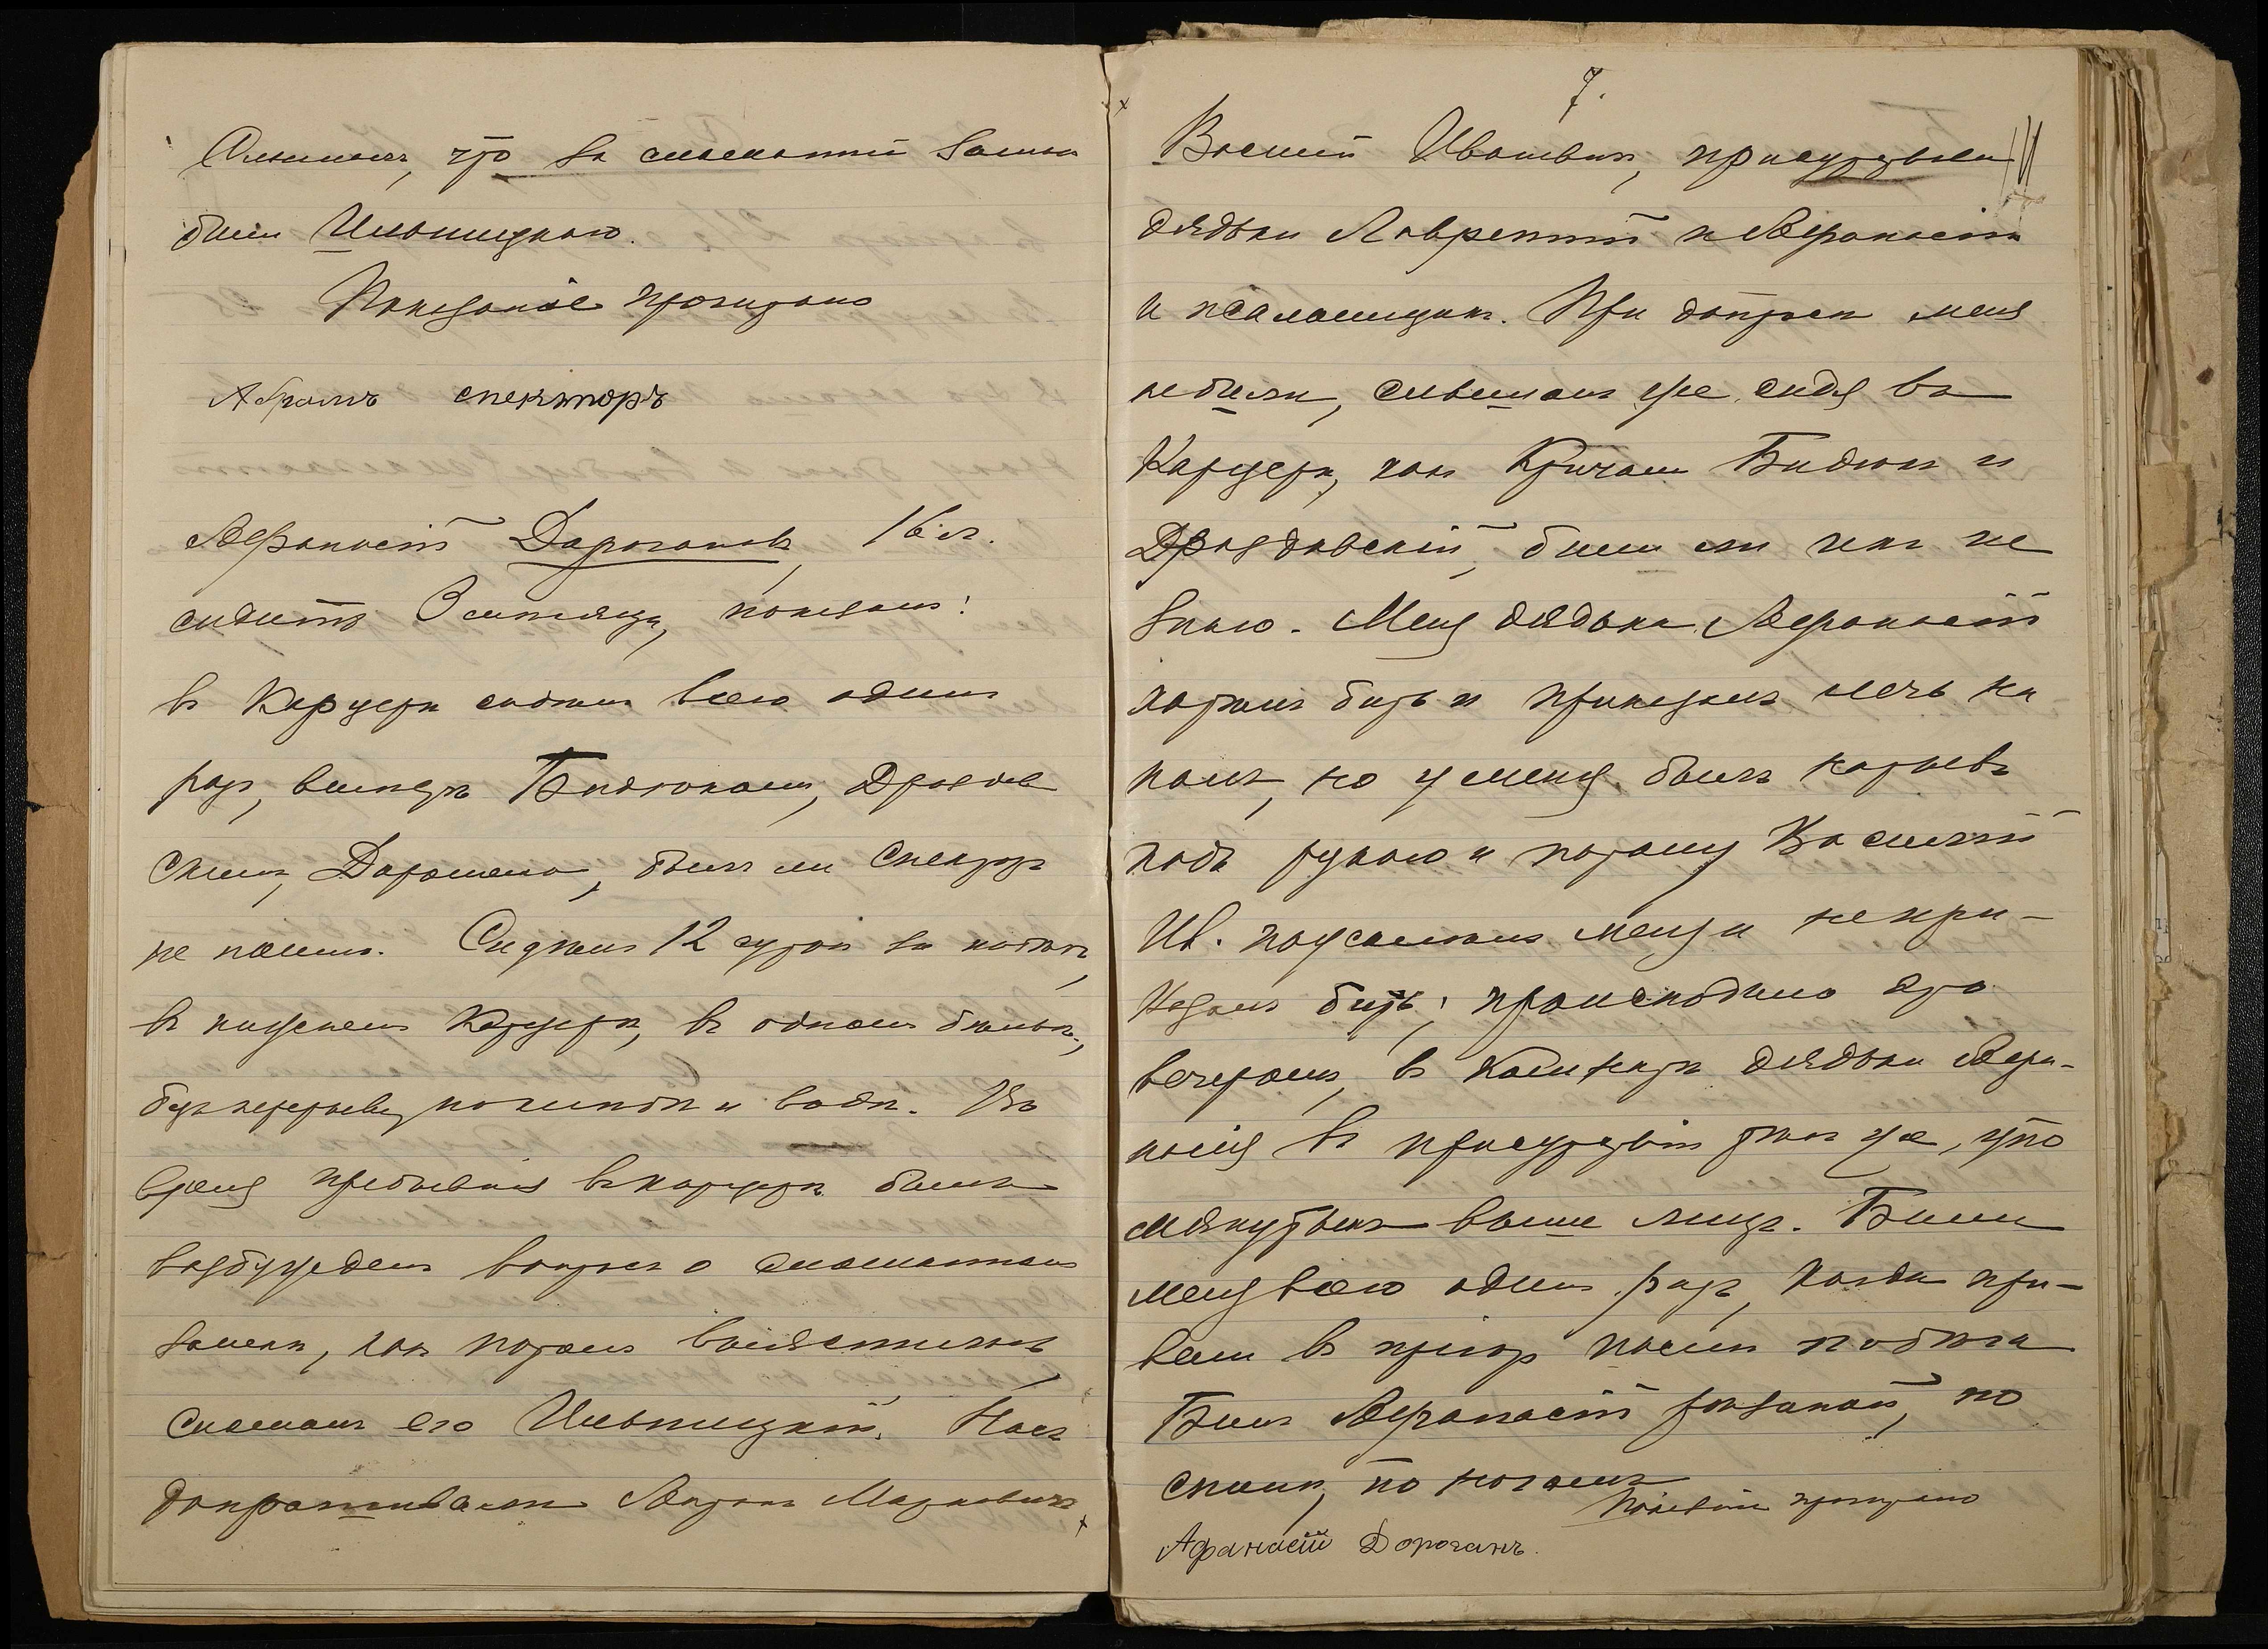 Слышалъ, что за сломанный замокъ
били Ильницкаго.
Показаніе прочитано
Абрамъ спекторъ
Афанасій Дороганъ, 16 л.
сидитъ показалъ:
въ Карцерѣ сидѣлъ всего одинъ
разъ, вмѣстѣ Бидюкомъ, Дроздов
скимъ, Дорошенко, былъ ли Спекторъ
не помню. Сидѣлъ 12 сутокъ за побѣгъ,
въ нижнемъ Карцерѣ, въ одномъ бѣльѣ,
безъ перерыву на хлѣбѣ и водѣ. Во
время пребыванія въ карцерѣ былъ
возбужденъ вопросъ о сломанномъ
замкѣ, какъ потомъ выяснилось
сломалъ его Ильницкій. Насъ
допрашивалъ Антонъ Марковичъ,
7.
Василій Ивановичъ, присутствовали
дядьки Лаврентій и Афанасій
и псаломщикъ. При допросѣ меня
не били, слышалъ уже сидя въ
Карцерѣ, какъ Кричали Бидюкъ и
Дроздовскій, били ли ихъ не
знаю. Меня дядька Афанасій
хотѣлъ бить и приказалъ лечь на
полъ, но у меня былъ нарывъ
подъ рукою и потому Василій
Ив. пожалѣлъ меня и не при-
казалъ бить; происходило это
вечеромъ, въ комнатѣ дядьки Афа-
насія въ присутствіи тѣхъ же, что
мянутыхъ выше лицъ. Били
меня всего одинъ разъ, когда при-
вели въ пріютъ послѣ побѣга
Билъ Афанасій резиной, по
спинѣ, по ногамъ
Показаніе прочитано
Афанасій Дороганъ.